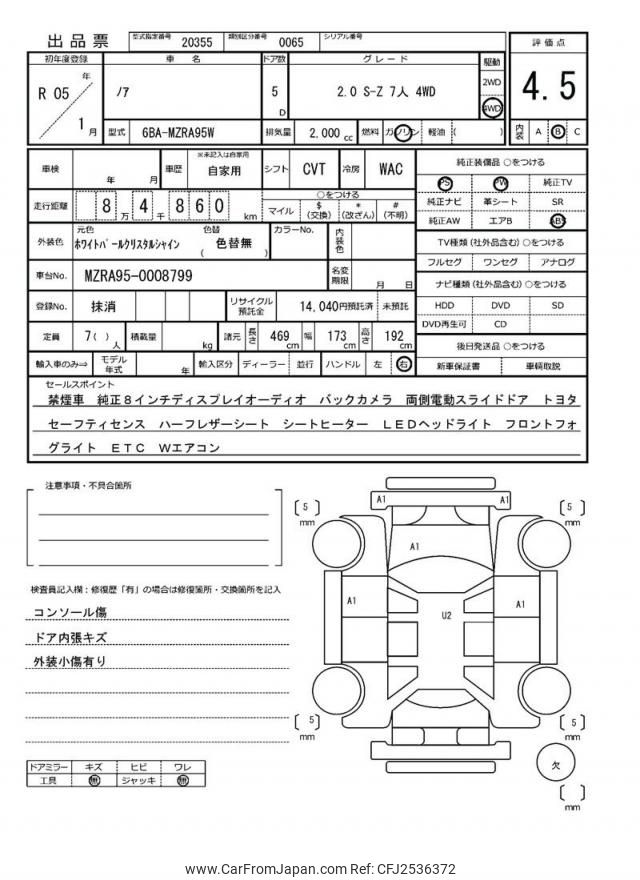 出品票 型式指定番号 20355 類別区分番号 0065 シリアル番号
評価点
4.5
内装 A B C
初年度登録 車名 ドア数 グレード 駆動
R 05 年 1 月 ノア 5 D 2.0 S-Z 7人 4WD 2WD 4WD
型式 6BA-MZRA95W 排気量 2,000 cc 燃料 ガソリン 軽油 ( )
車検 年 月 車歴 ※未記入は自家用 自家用 シフト CVT 冷房 WAC
走行距離 8 万 4 千 8 6 0 km
○をつける
マイル $ (交換) * (改ざん) # (不明)
外装色 元色 ホワイトパールクリスタルシャイン 色替 ( 色替無 ) カラーNo. 内装色
車台No. MZRA95-0008799 名変期限 月 日
登録No. 抹消 リサイクル預託金 14,040円預託済 未預託
定員 7( )人 積載量 kg 諸元 長さ 469 cm 幅 173 cm 高さ 192 cm
輸入車のみ⇒ モデル年式 年 輸入区分 ディーラー 並行 ハンドル 左 右
純正装備品 ○をつける
PS PW 純正TV
純正ナビ 革シート SR
純正AW エアB ABS
TV種類(社外品含む)○をつける
フルセグ ワンセグ アナログ
ナビ種類(社外品含む)○をつける
HDD DVD SD
DVD再生可 CD
後日発送品 ○をつける
新車保証書 車輌取説
セールスポイント
禁煙車 純正8インチディスプレイオーディオ バックカメラ 両側電動スライドドア トヨタ
セーフティセンス ハーフレザーシート シートヒーター LEDヘッドライト フロントフォ
グライト ETC Wエアコン
注意事項・不具合箇所
検査員記入欄:修復歴「有」の場合は修復箇所・交換箇所を記入
コンソール傷
ドア内張キズ
外装小傷有り
ドアミラー キズ ヒビ ワレ
工具 無 ジャッキ 無
5 mm
A1 A1
5 mm
A1
A1 U2 A1
5 mm
5 mm
欠
mm
www.CarFromJapan.com Ref: CFJ2536372